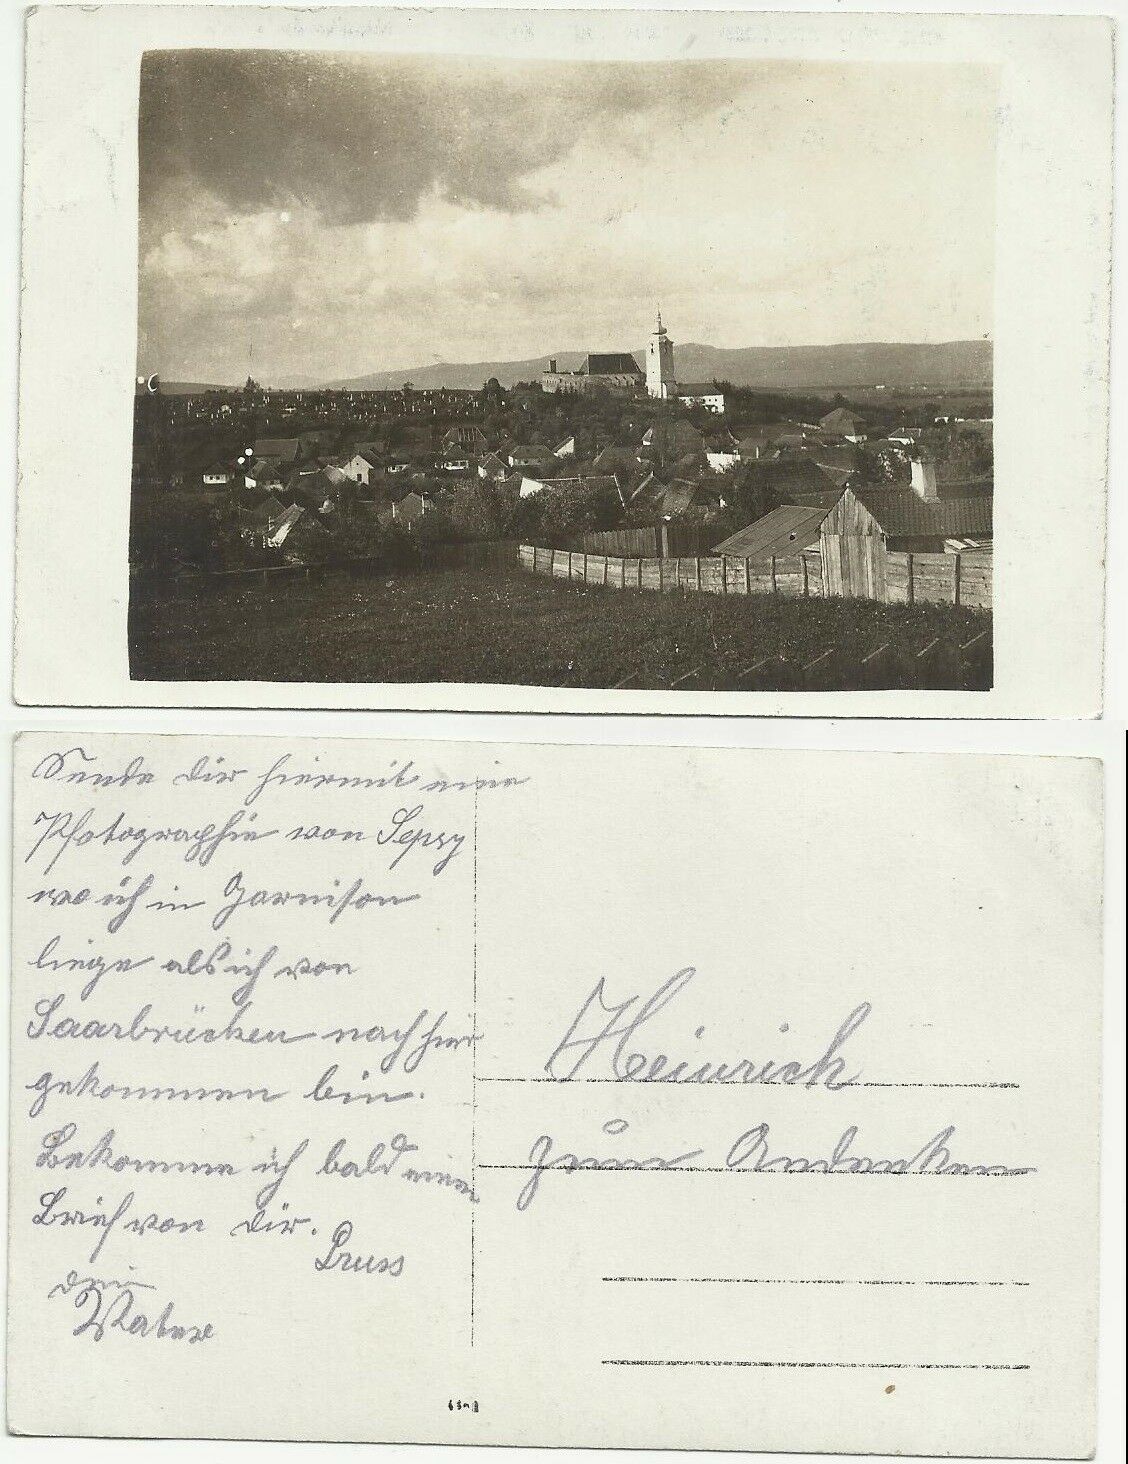 Sende dir hiermit eine
Photographie von Sepsy
wo ich in Garnison
liege als ich von
Saarbrücken nach hier
gekommen bin.
Bekomme ich bald einen
Brief von dir.
Gruss
dein
Vater
Heinrich
zum Andenken